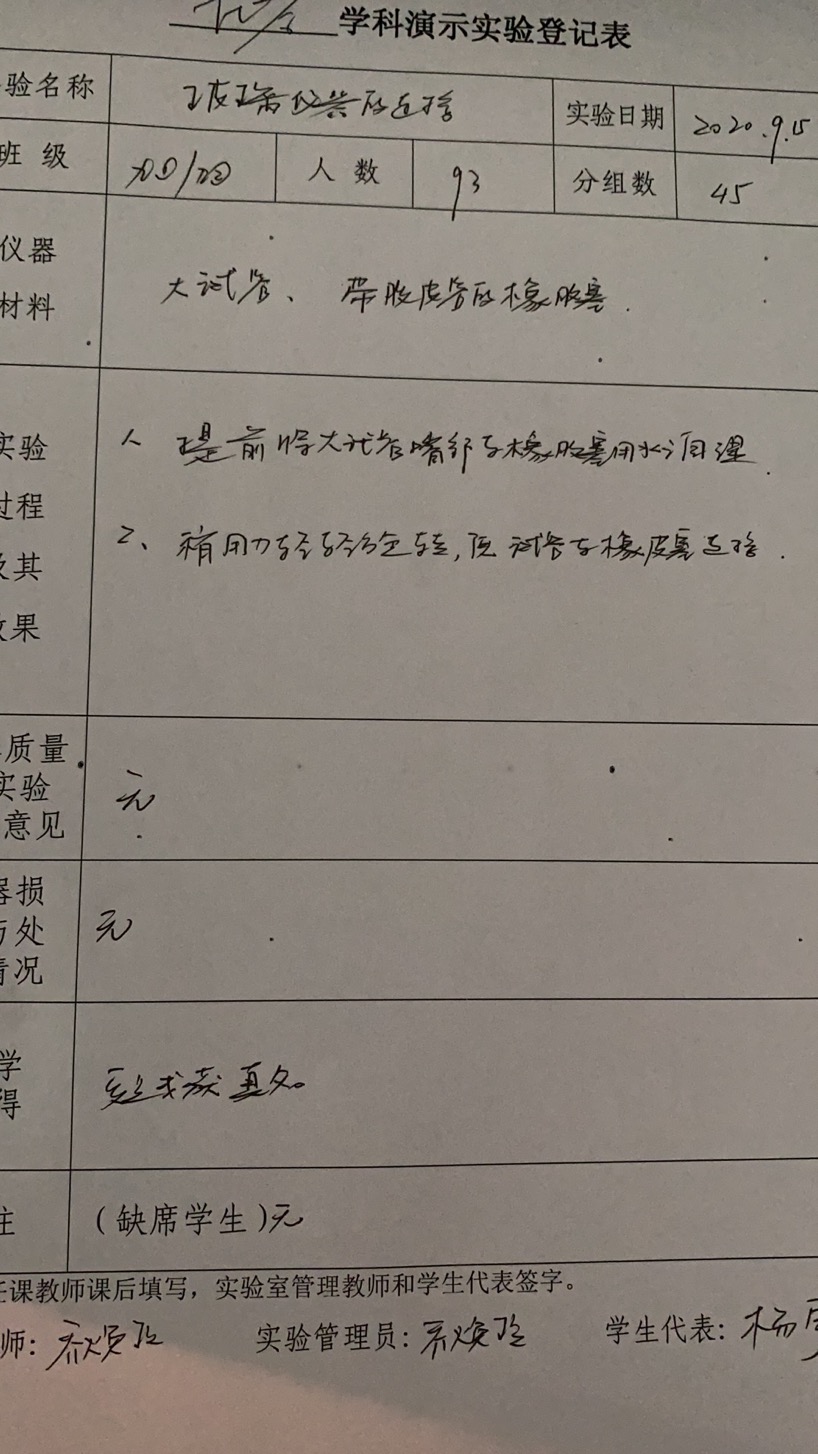 化学 学科演示实验登记表
验名称 玻璃仪器的连接 实验日期 2020.9.15
班 级 人 数 93 分组数 45
仪器
材料
大试管、带胶皮管的橡胶塞.
实验
过程
及其
效果
1、提前将大试管嘴部与橡胶塞用水润湿.
2、稍用力轻轻旋转,把试管与橡皮塞连接.
质量
实验
意见
无
器损
与处
情况
无
学
得
注 (缺席学生)无
任课教师课后填写，实验室管理教师和学生代表签字。
师: 实验管理员: 学生代表: 杨